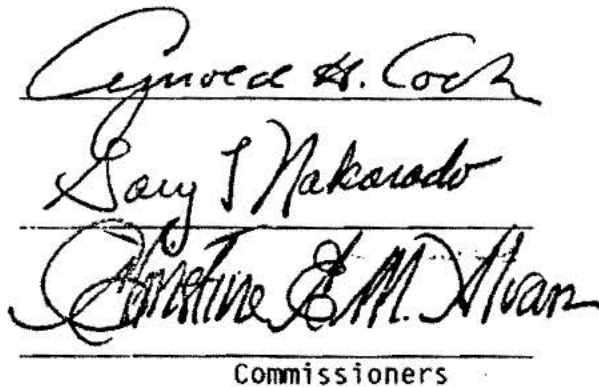 Arnold H. Cook
Gary L Nakarado
Christine E. M. Alvarez
Commissioners